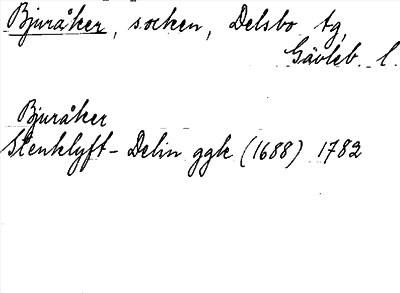 Bjuråker, socken, Delsbo tg,
Gävleb. l.
Bjuråker
Stenklyft - Delin ggk (1688) 1782